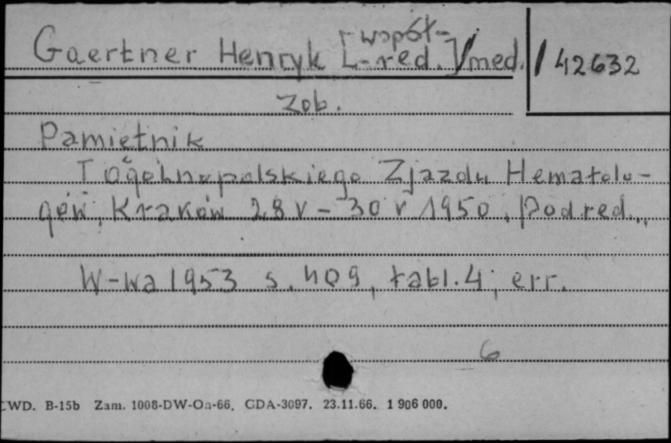 Gaertner Henryk [-współ-
-red.]/med. / 42632
zob.
Pamiętnik
I Ogólnopolskiego Zjazdu Hematolo-
gów, Kraków 28 V - 30 V 1950, Pod red...
W-wa 1953 s. 409, tabl. 4; err.
6
CWD. B-15b Zam. 1008-DW-Oa-66. CDA-3097. 23.11.66. 1 906 000.